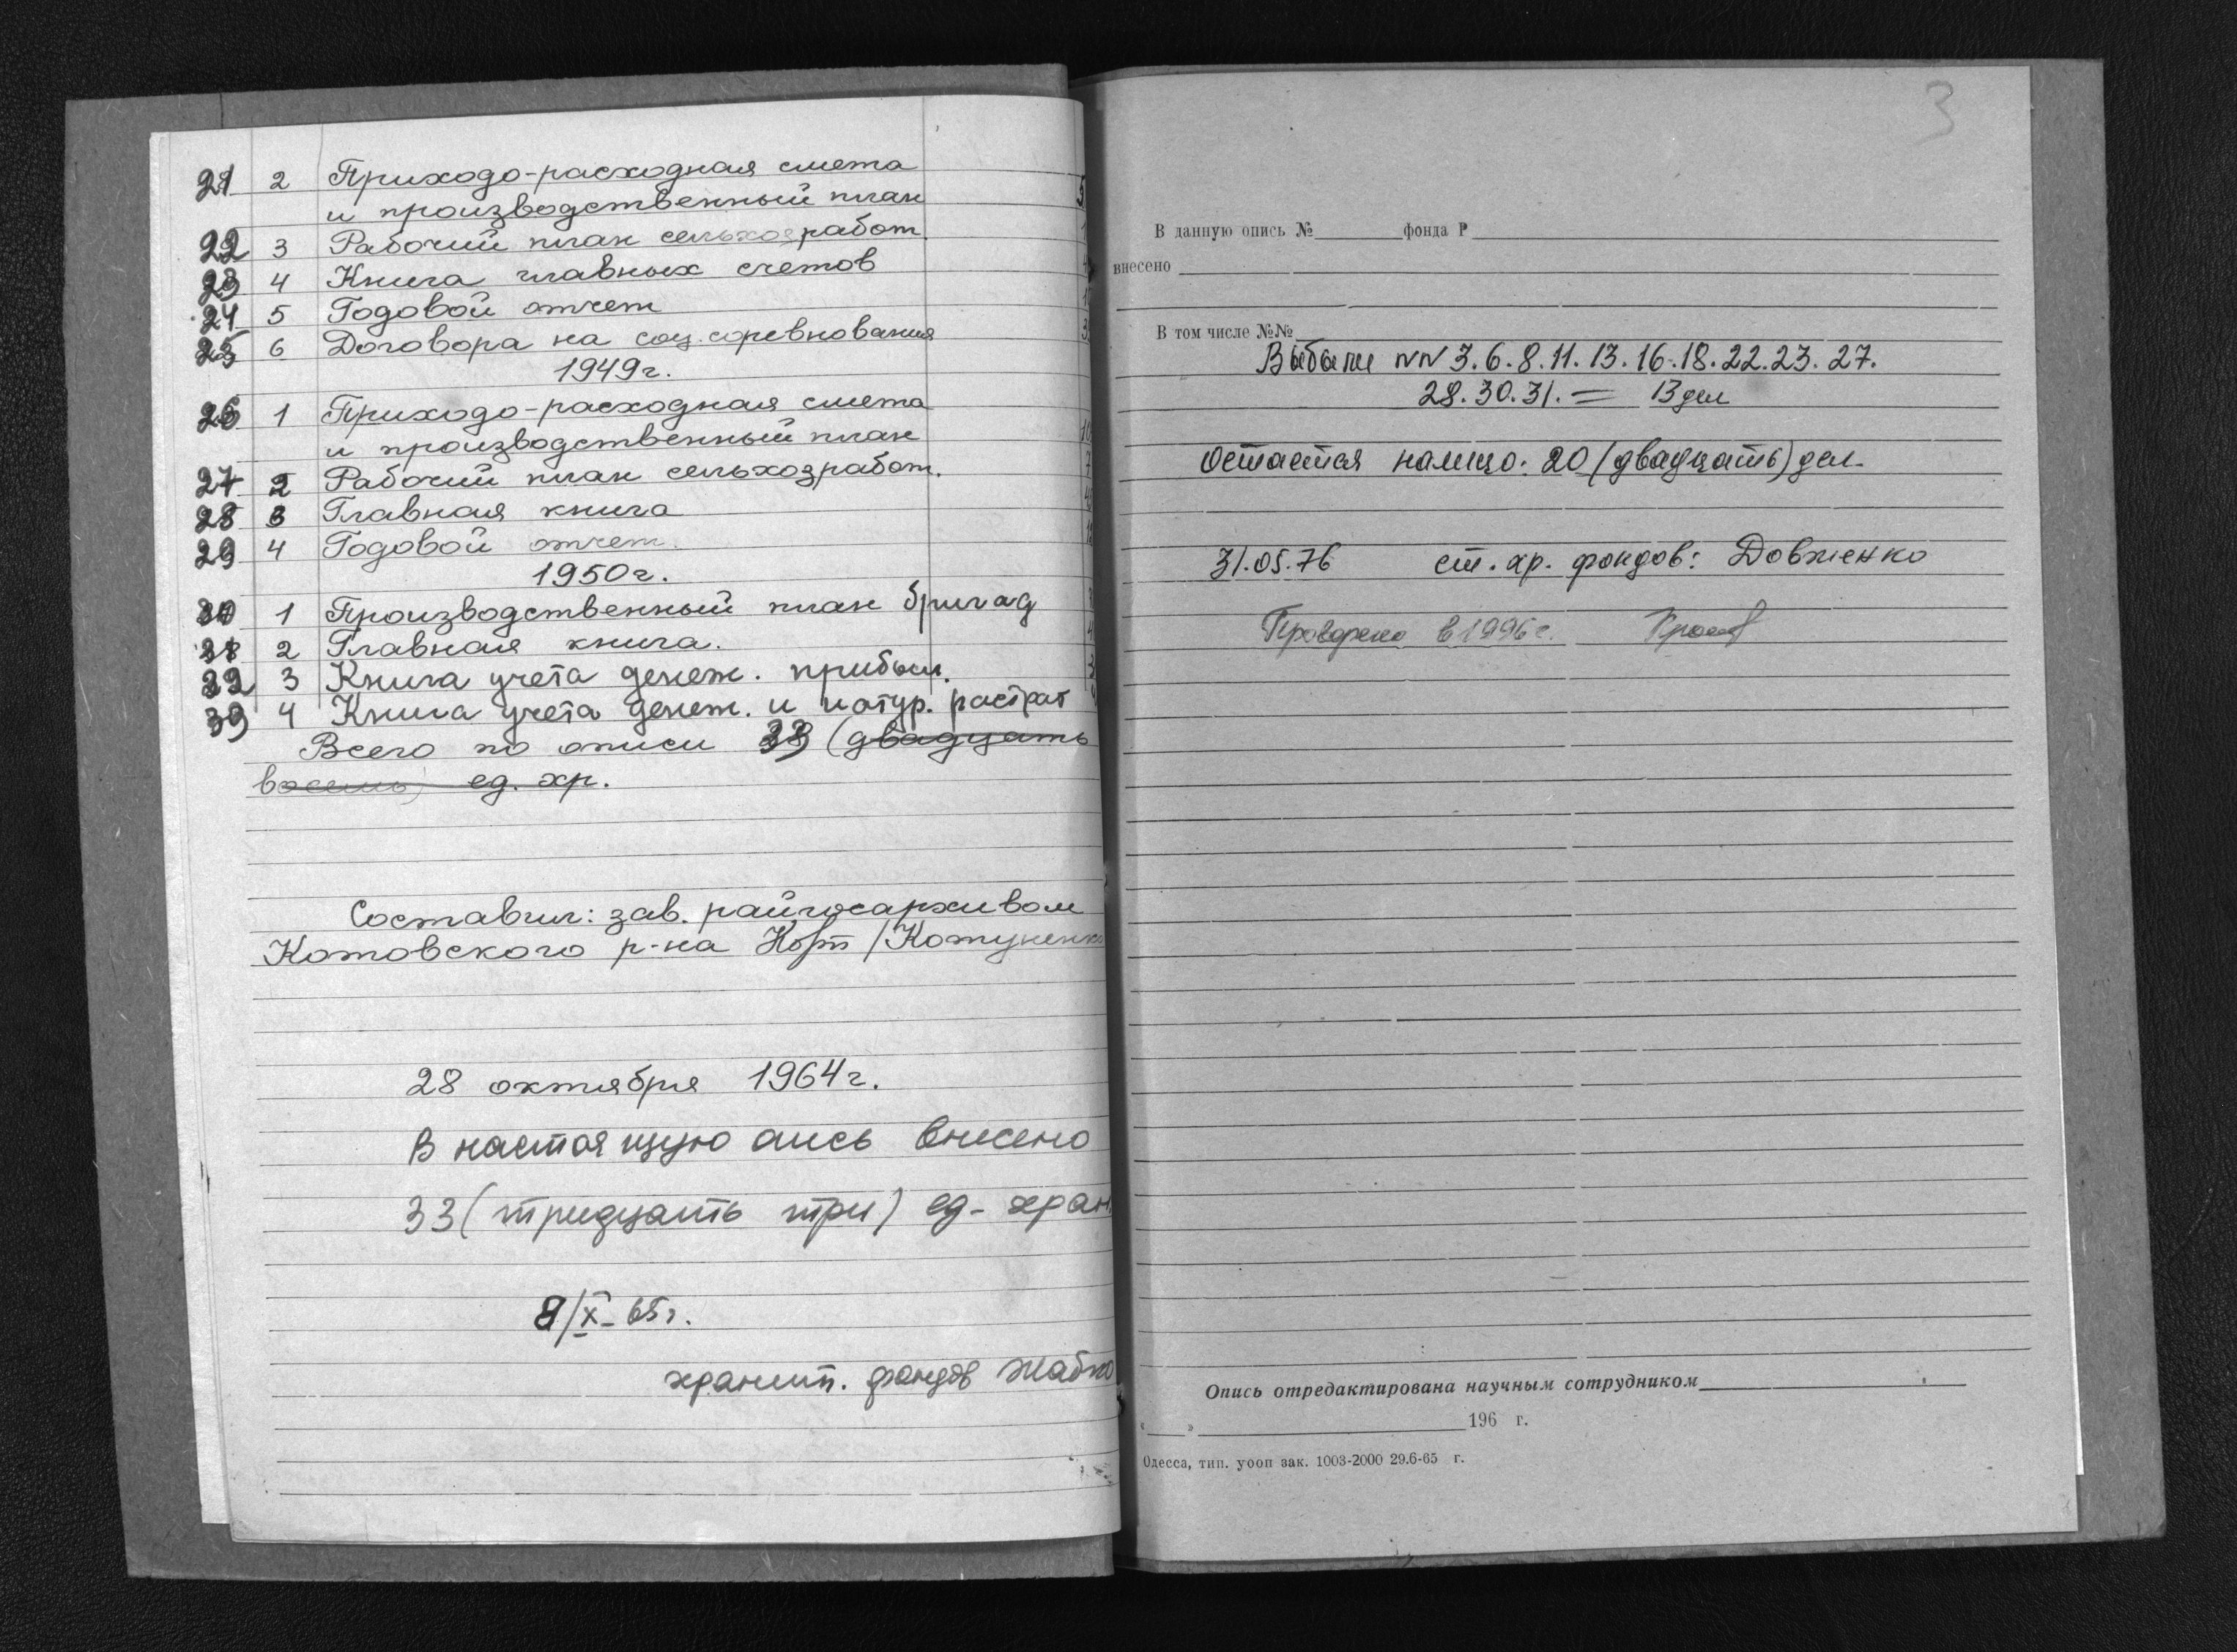 21 2 Приходо-расходная смета
и производственный план
22 3 Рабочий план сельхозработ.
23 4 Книга главных счетов
24 5 Годовой отчет
25 6 Договора на соц. соревнования
1949г.
26 1 Приходо-расходная смета
и производственный план
27 2 Рабочий план сельхозработ.
28 3 Главная книга
29 4 Годовой отчет.
1950г.
30 1 Производственный план бригад
31 2 Главная книга.
32 3 Книга учета денеж. прибыл.
33 4 Книга учета денеж. и натур. растрат
Всего по описи 33 (двадцать
восемь) ед. хр.
Составил: зав. райгосархивом
Котовского р-на
28 октября 1964г.
В настоящую опись внесено
33 (тридцать три) ед. хран
8/X-65г.
хранит. фондов
3
В данную опись № фонда Р
внесено
В том числе №№
Выбыли NN 3.6.8.11.13.16.18.22.23.27.
28.30.31. = 13 дел
Остается налицо: 20 (двадцать) дел.
31.05.76 ст. хр. фондов: Довженко
Проверено в 1996г.
Опись отредактирована научным сотрудником
« » 196 г.
Одесса, тип. уооп зак. 1003-2000 29.6-65 г.